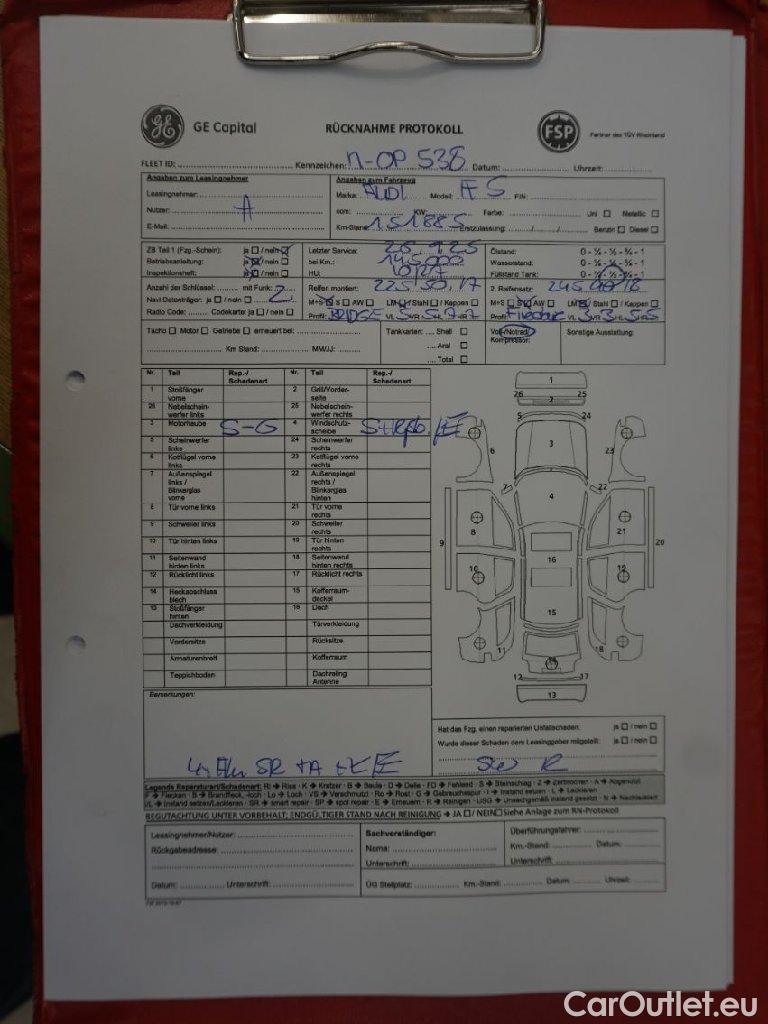 GE Capital
RÜCKNAHME PROTOKOLL
FSP
Partner des TÜV Rheinland
FLEET ID: Kennzeichen: N-OP 538 Datum: Uhrzeit:
Angaben zum Leasingnehmer
Angaben zum Fahrzeug
Leasingnehmer: Marke: AUDI Modell: FIN:
Nutzer: A ccm: KW: Farbe: Uni ☐ Metallic ☐
E-Mail: Km-Stand: 151885 Erstzulassung: Benzin ☐ Diesel ☐
ZB Teil 1 (Fzg.-Schein): ja ☐ / nein ☒ Letzter Service: Ölstand: 0 - ¼ - ½ - ¾ - 1
Betriebsanleitung: ja ☒ / nein ☐ bei Km.: 145000 Wasserstand: 0 - ¼ - ½ - ¾ - 1
Inspektionsheft: ja ☒ / nein ☐ HU: Füllstand Tank: 0 - ¼ - ½ - ¾ - 1
Anzahl der Schlüssel: mit Funk: 2 Reifen montiert: 225 50 17 2. Reifensatz: 245 40 18
Navi Datenträger: ja ☐ / nein ☐ M+S ☒ S ☐ AW ☐ LM ☒ Stahl ☐ / Kappen ☐ M+S ☐ S ☒ AW ☐ LM ☒ Stahl ☐ / Kappen ☐
Radio Code: Codekarte: ja ☐ / nein ☐ Profil: BRIDGE VL 5 VR 5 HL 7 HR 7 Profil:
Tacho ☐ Motor ☐ Getriebe ☐ erneuert bei: Tankkarten: Shell ☐ Voll-/Notrad/ Sonstige Ausstattung:
Km Stand: MW/JJ: Aral ☐ Kompressor:
Total ☐
Nr. Teil Rep.-/ Schadenart Nr. Teil Rep.-/ Schadenart
1 Stoßfänger vorne 2 Grill/Vorderseite
26 Nebelscheinwerfer links 25 Nebelscheinwerfer rechts
3 Motorhaube S-G 4 Windschutzscheibe
5 Scheinwerfer links 24 Scheinwerfer rechts
6 Kotflügel vorne links 23 Kotflügel vorne rechts
7 Außenspiegel links / Blinkerglas vorne 22 Außenspiegel rechts / Blinkerglas hinten
8 Tür vorne links 21 Tür vorne rechts
9 Schweller links 20 Schweller rechts
10 Tür hinten links 19 Tür hinten rechts
11 Seitenwand hinten links 18 Seitenwand hinten rechts
12 Rücklicht links 17 Rücklicht rechts
14 Heckabschlussblech 15 Kofferraumdeckel
13 Stoßfänger hinten 16 Dach
Dachverkleidung Türverkleidung
Vordersitze Rücksitze
Armaturenbrett Kofferraum
Teppichboden Dachreling Antenne
1 26 25 2 5 24 3 6 23 7 22 4 8 21 9 20 16 10 19 15 11 18 14 12 17 13
Bemerkungen:
Hat das Fzg. einen reparierten Unfallschaden: ja ☐ / nein ☐
Wurde dieser Schaden dem Leasinggeber mitgeteilt: ja ☐ / nein ☐
Legende Reparaturart/Schadenart: RI → Riss • K → Kratzer • B → Beule • D → Delle • FD → Fehlend • S → Steinschlag • Z → Zerbrochen • A →
F → Flecken • B → Brandfleck, -loch • Lo → Loch • VS → Verschmutzt • Ro → Rost • G → Gebrauchsspur • I → Instand setzen • L → Lackieren
I/L → Instand setzen/Lackieren • SR → smart repair • SP → spot repair • E → Erneuern • R → Reinigen • USG → Unsachgemäß instand gesetzt • N → Nachlackiert
BEGUTACHTUNG UNTER VORBEHALT; ENDGÜLTIGER STAND NACH REINIGUNG → JA ☐ / NEIN ☐ Siehe Anlage zum RN-Protokoll
Leasingnehmer/Nutzer: Sachverständiger: Überführungsfahrer:
Rückgabeadresse: Name: Km.-Stand: Datum:
Unterschrift: Unterschrift:
Datum: Unterschrift: ÜG Stellplatz: Km.-Stand: Datum: Uhrzeit:
CarOutlet.eu